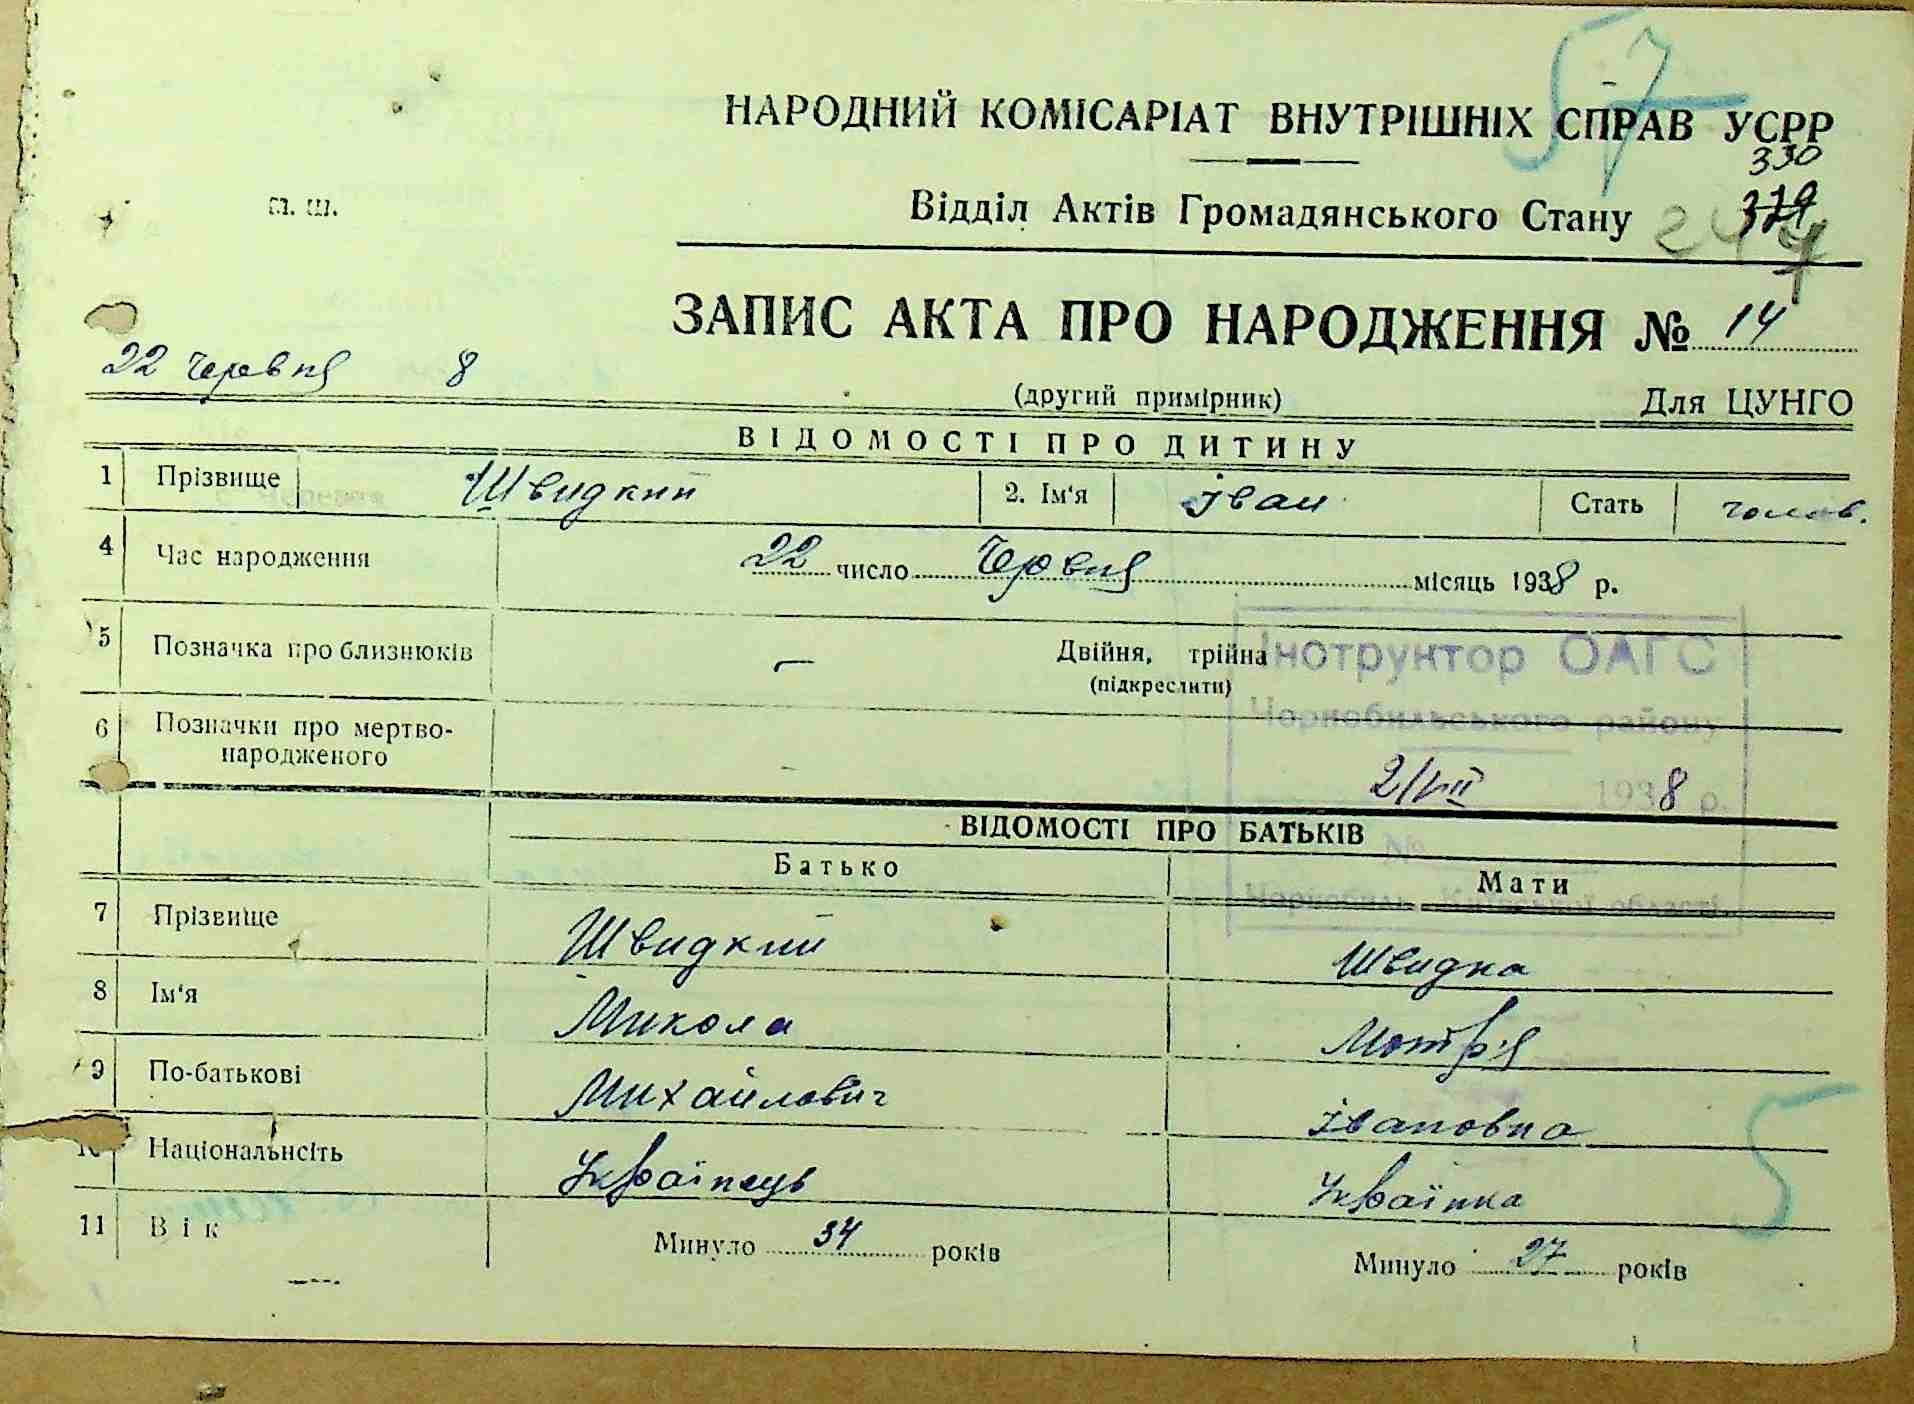 57
НАРОДНИЙ КОМІСАРІАТ ВНУТРІШНІХ СПРАВ УСРР
330
М. Ш.
Відділ Актів Громадянського Стану
329
247
ЗАПИС АКТА ПРО НАРОДЖЕННЯ № 14
22 червня 8
(другий примірник) Для ЦУНГО
ВІДОМОСТІ ПРО ДИТИНУ
1 Прізвище Швидкий 2. Ім'я Іван Стать чолов.
4 Час народження 22 число Червня місяць 1938 р.
5 Позначка про близнюків — Двійня, трійна
(підкреслити)
Інструктор ОАГС
Чорнобильського району
6 Позначки про мертво-
народженого -
2/VIII 1938 р.
№
Чорнобиль, Київської області
ВІДОМОСТІ ПРО БАТЬКІВ
Батько Мати
7 Прізвище Швидкий Швидка
8 Ім'я Микола Мотр'я
9 По-батькові Михайлович Івановна
5
10 Національнсіть Українець Українка
11 Вік Минуло 34 років Минуло 27 років